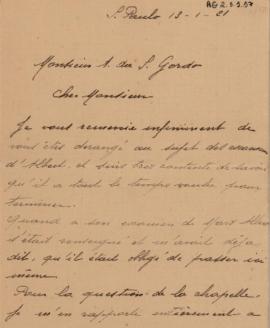 S. Paulo 13-1-21
Monsieur A. de S. Gordo
Cher Monsieur
Je vous remercie infiniment de
vous être dérangé au sujet des examens
d'Albert, et suis très contente de savoir
qu'il a tout le temps voulu pour
terminer.
Quand a son examen de Albert
s'était renseigné et m'avait déjà
dit, qu'il était obligé de passer ici
même
Pour la question de la chapelle,
Je m'en rapporte entièrement a